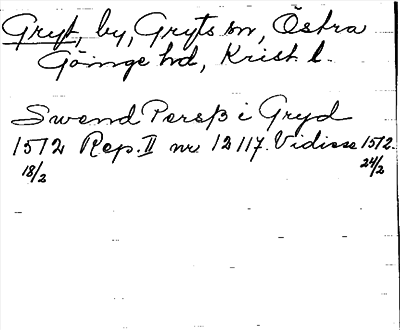 Gryt, by, Gryts sn, Östra
Göinge hd, Krist l.
Swend Persß i Gryd
1512 Rep. II nr 12117. Vidisse 1512.
18/2 24/2